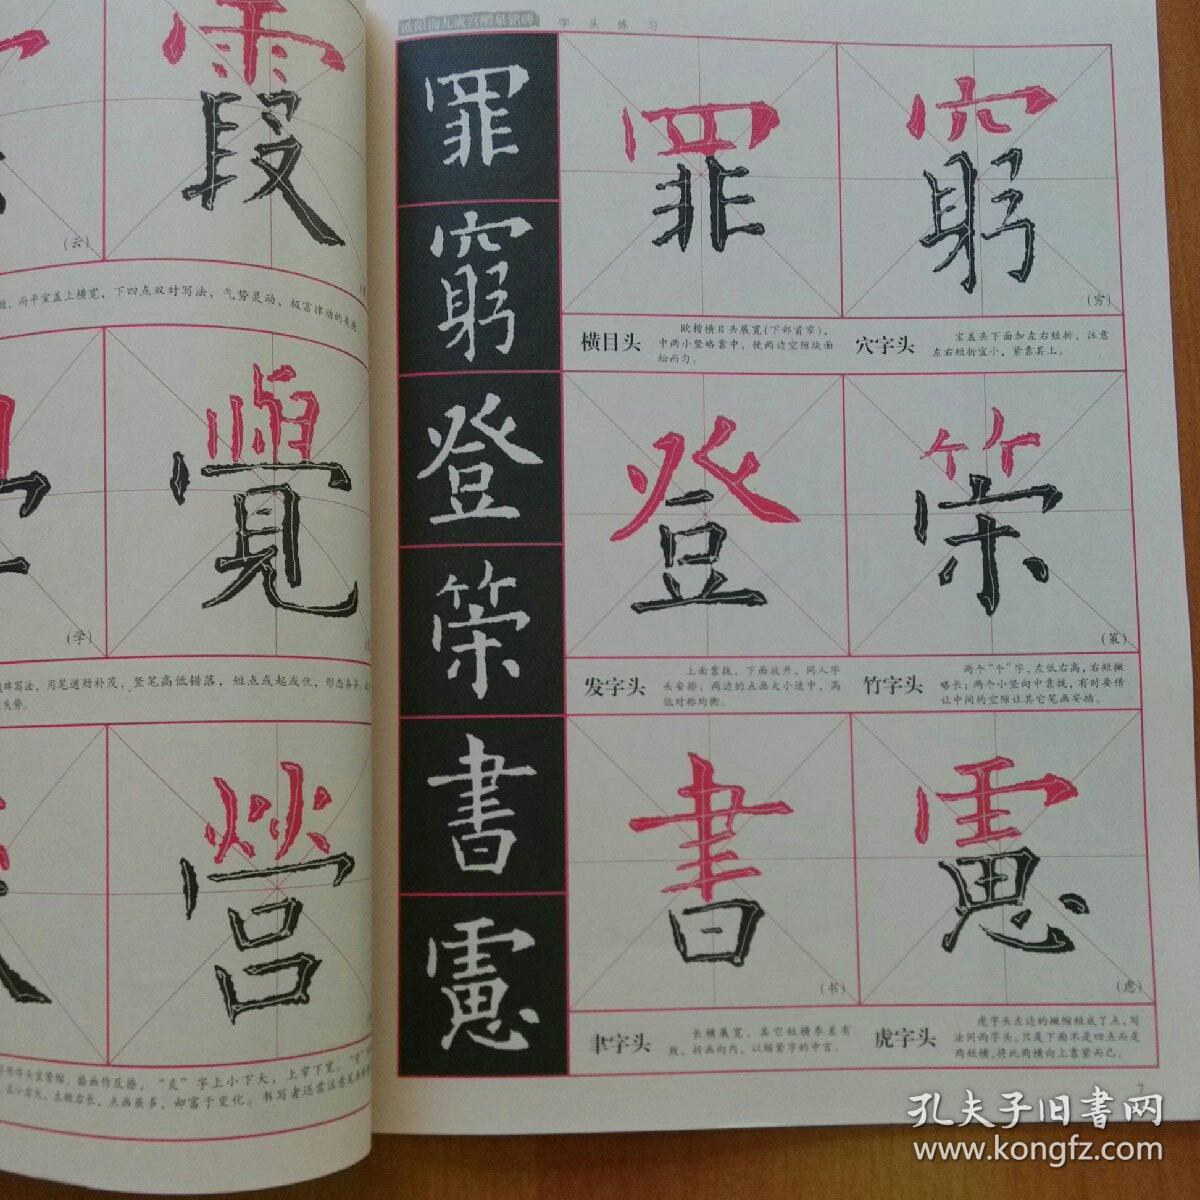 霞
(云)
而平宝盖上横宽，下四点双对写法，气势灵动、极富律动的美感。
覺
(学)
碑写法，用笔遒劲朴茂，竖笔高低错落，短点或起或伏，形态各异。
失势。
營
"炎"字上小下大，上窄下宽。
左小右大。左短右长，点画虽多，却富于变化。书写者还需注意
欧阳询九成宫醴泉铭碑
字头练习
罪
窮
登
策
書
慮
罪
窮
(穷)
横目头
欧楷横目头展宽(下部首窄)，
中两小竖略靠中，使两边空隙块面
松而匀。
穴字头
宝盖头下面加左右短折，注意
左右短折宜小，紧靠其上。
登
策
(策)
发字头
上面靠拢，下面放开，同人字
头安排，两边的点画大小适中，高
低对称均衡。
竹字头
两个"个"字，左低右高，右短撇
略长；两个小竖向中靠拢，有时要借
让中间的空隙让其它笔画安插。
書
(书)
慮
(虑)
聿字头
长横展宽，其它短横参差有
致，折画向内，以缩紧字的中宫。
虎字头
虎字头左边的撇缩短成了点，写
法同雨字头。只是下面不是四点而是
两短横，将此两横向上靠紧而已。
7
孔夫子旧书网
www.kongfz.com